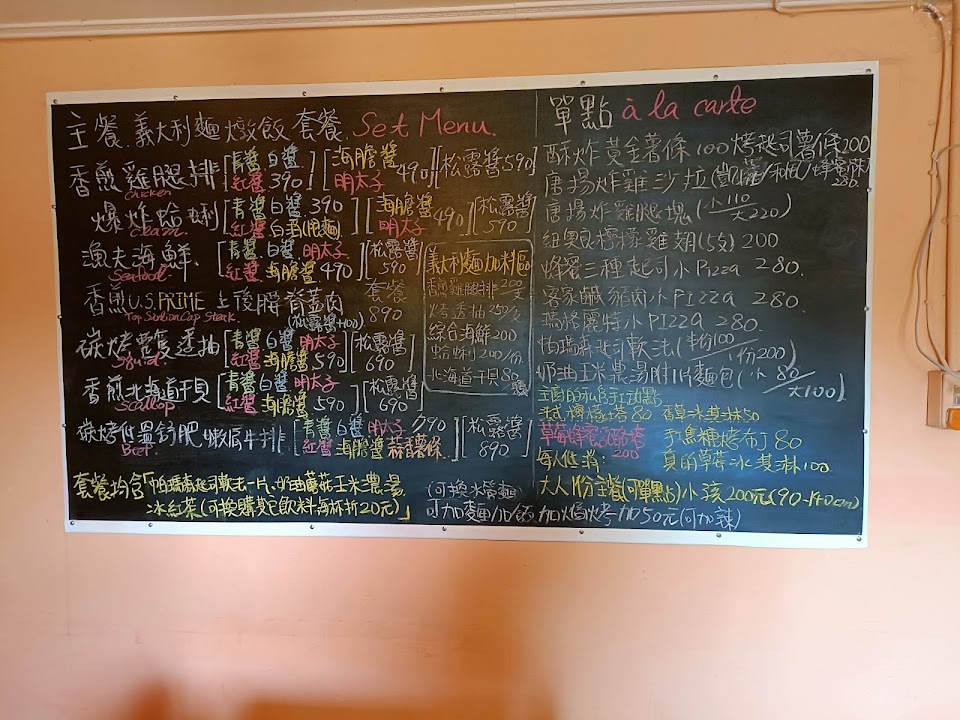 主餐.義大利麵燉飯套餐.Set Menu.
香煎雞腿排[青醬白醬 紅醬390][海膽醬 明太子490][松露醬590]
Chicken
爆炸蛤蜊[青醬白醬.390 紅醬白酒(限麵)][海膽醬 明太子490][松露 590]
Clam
漁夫海鮮.[青醬白醬 明太子 紅醬 海膽醬490][松露醬 590]
Seafood
香煎U.S.PRIME上後腰脊蓋肉 套餐 890
Top Sirloin Cap Steak (松露醬+100)
碳烤隻透抽[青醬白醬明太子 紅醬海膽醬590][松露醬 690]
Squid
香煎北海道干貝[青醬白醬明太子 紅醬海膽醬590][松露醬 690]
Scallop
碳烤低溫舒肥嫩肩牛排[青醬白醬明太子790 紅醬海膽醬蒜薯條][松露醬 890]
Beef
義大利麵加料區
香煎雞腿排200
烤透抽250/隻
綜合海鮮200
蛤蜊200/份
北海道干貝80/顆
套餐均含「帕瑞森起司軟法一片、奶油蘑菇玉米濃湯
冰紅茶(可換購其它飲料每杯折20元)」
可加麵加飯加焗烤+加50元(可加辣)
單點 à la carte
酥炸黃金薯條100 烤起司薯條200
唐揚炸雞沙拉(凱薩/和風/蜂蜜芥末) 280.
唐揚炸雞腿塊(小110/大220)
紐奧良檸檬雞翅(5支)200
蜂蜜三種起司小Pizza 280.
客家鹹豬肉小PIZZA 280
瑪格麗特小PIZZA 280.
帕瑞森起司軟法(半份100/1份200)
奶油玉米濃湯附1片麵包(小80/大100)
主廚的私房手工甜點
法式檸檬塔80 香草冰淇淋50
草莓蜂蜜奶酪塔200 手焦糖烤布丁80
每人低消: 真的草莓冰淇淋100
大人1份主餐(可單點)小孩200元(90-140cm)